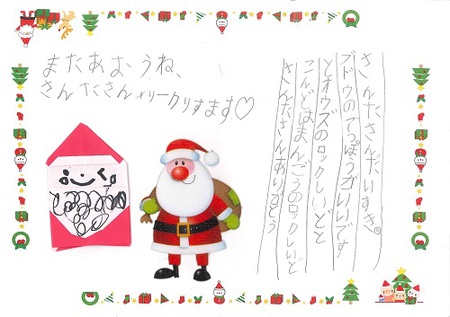 さんたさんありがとう
こんどはまんごうのロックしいど
とオウズのロックしいどと
ブドウのてっぽうがいいです
さんたさんだいすき。
またあおうね、
さんたさんメリークリすます♡